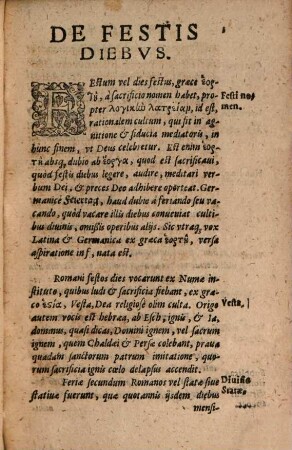 DE FESTIS
DIEBVS.
FEstum vel dies festus, græce ἑορ-
τὴ, à sacrificio nomen habet, pro-
pter λογικὴν λατρείαν, id est,
rationalem cultum, qui sit in ag-
nitione & fiducia mediatoris, in
hunc finem, vt Deus celebretur. Est enim ἑορ-
τὴ absq; dubio ab ἔοργα, quod est sacrificaui,
quòd festis diebus legere, audire, meditari ver-
bum Dei, & preces Deo adhibere oporteat. Ger-
manicè Feiertag, haud dubiè à feriando seu va-
cando, quòd vacare illis diebus conueniat culti-
bus diuinis, omissis operibus alijs. Sic vtraq; vox
Latina & Germanica ex græca ἑορτὴ, versa
aspiratione in f, nata est.
Festi no-
men.
Romani festos dies vocarunt ex Numæ in-
stituto, quibus ludi & sacrificia fiebant, ex græ-
co Vesta, Dea religiosè olim culta. Origo
autem vocis est hebræa, ab Esch, ignis, & Ia,
dominus, quasi dicas, Domini ignem, vel sacrum
ignem, quem Chaldæi & Persæ colebant, praua
quadam sanctorum patrum imitatione, quo-
rum sacrificia ignis cœlo delapsus accendit.
Vesta,
Feriæ secundum Romanos vel statæ siue
statiuæ fuerunt, quæ quotannis ijsdem diebus
mensi-
Diuisio
Statæ,